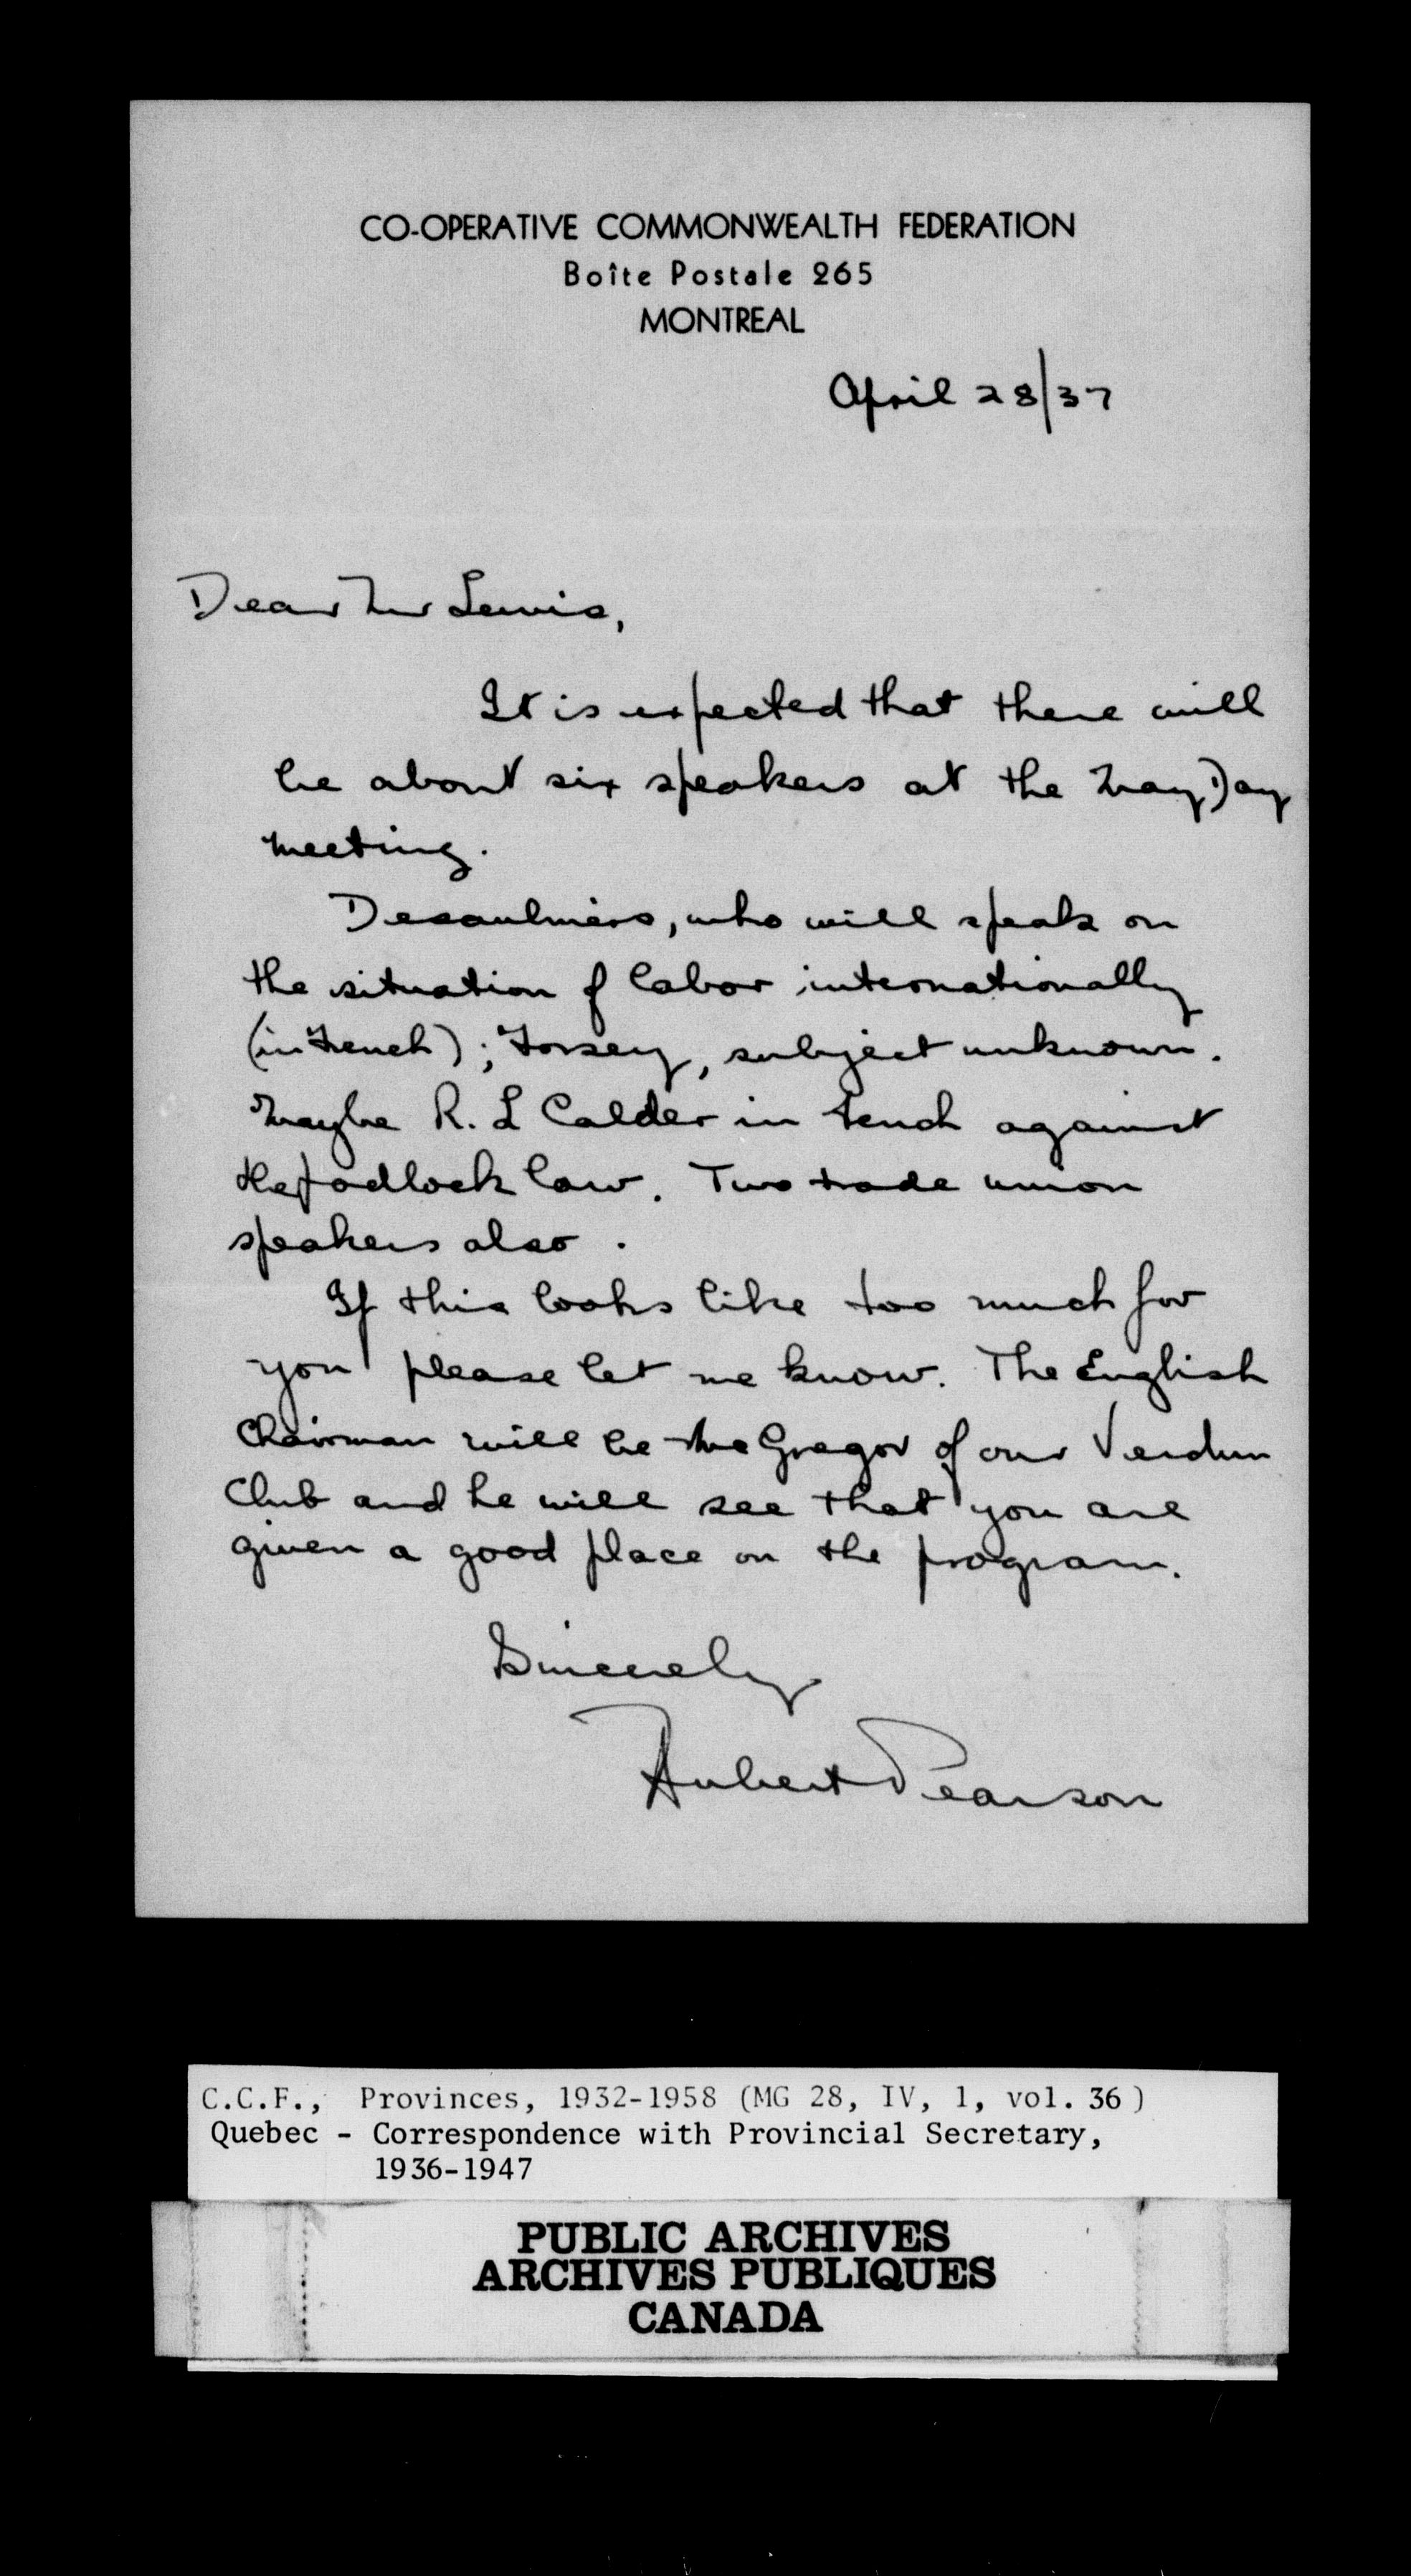 CO-OPERATIVE COMMONWEALTH FEDERATION
Boîte Postale 265
MONTREAL
April 28/37
Dear Mr Lewis,
It is expected that there will
be about six speakers at the May Day
meeting.
Desaulniers, who will speak on
the situation of labor internationally
(in French); Forsey, subject unknown.
Maybe R. L Calder in French against
the padlock law. Two trade union
speakers also.
If this looks like too much for
you please let me know. The English
Chairman will be McGregor of our Verdun
Club and he will see that you are
given a good place on the program.
Sincerely
Hubert Pearson
C.C.F., Provinces, 1932-1958 (MG 28, IV, 1, vol. 36)
Quebec - Correspondence with Provincial Secretary,
1936-1947
PUBLIC ARCHIVES
ARCHIVES PUBLIQUES
CANADA